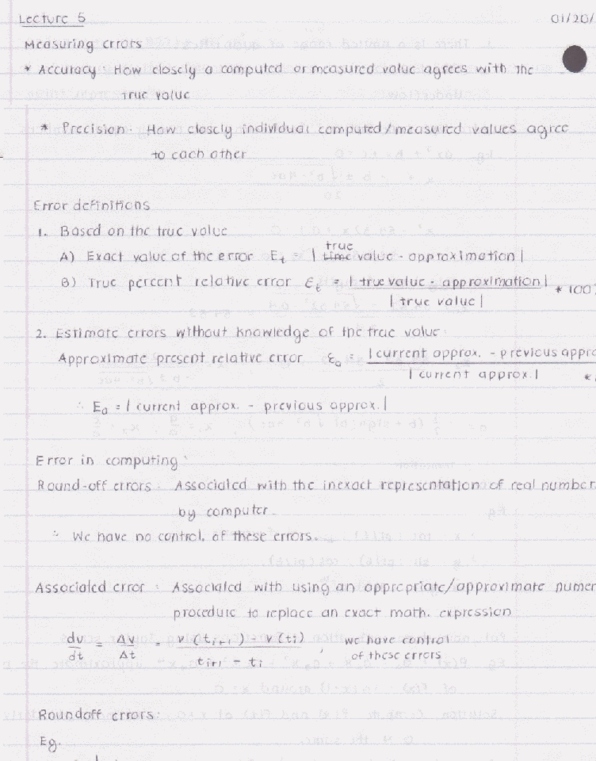 Lecture 5 01/20/
Measuring errors
* Accuracy · How closely a computed or measured value agrees with the
true value
* Precision · How closely individual computed/measured values agree
to each other
Error definitions
1. Based on the true value
A) Exact value of the error E_t = | true value - approximation |
B) True percent relative error ε_t = | true value - approximation | / | true value | * 100%
2. Estimate errors without knowledge of the true value ·
Approximate present relative error ε_a = | current approx. - previous appro / | current approx. | *
∴ E_a = | current approx. - previous approx. |
Error in computing :
Round-off errors · Associated with the inexact representation of real number
by computer
∴ We have no control, of these errors.
Associated error : Associated with using an appropriate/approximate numer
procedure to replace an exact math. expression
dv/dt = Δv/Δt = v(t_{i+1}) - v(t_i) / t_{i+1} - t_i , we have control
of these errors
Roundoff errors:
Eg.